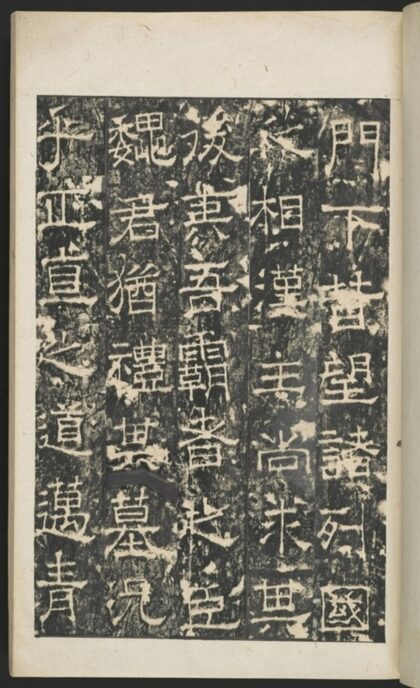 門下昔望諸列國
之相漢主尚求其
後夷吾霸者之臣
魏君猶禮其墓況
乎正直之道邁青